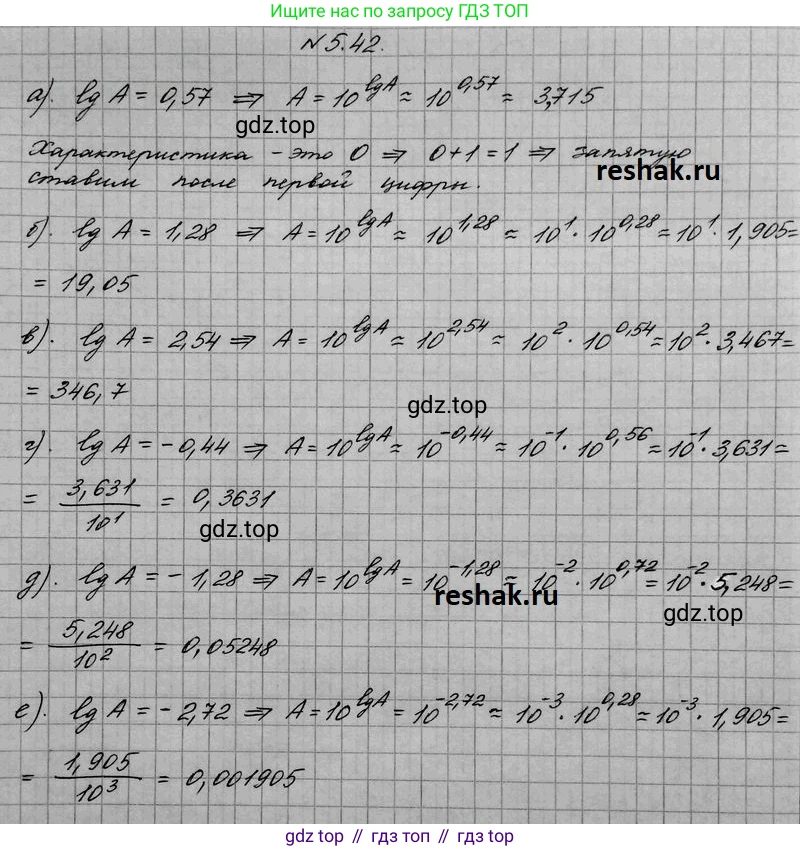 Ищите нас по запросу ГДЗ ТОП
№ 5.42.
а). lg A = 0,57 ⇒ A = 10^lgA ≈ 10^0,57 ≈ 3,715
gdz.top
Характеристика - это 0 ⇒ 0+1=1 ⇒ запятую
reshak.ru
ставим после первой цифры.
б). lg A = 1,28 ⇒ A = 10^lgA ≈ 10^1,28 ≈ 10^1 · 10^0,28 = 10^1 · 1,905 =
= 19,05
в). lg A = 2,54 ⇒ A = 10^lgA ≈ 10^2,54 ≈ 10^2 · 10^0,54 ≈ 10^2 · 3,467 =
= 346,7
gdz.top
г). lg A = -0,44 ⇒ A = 10^lgA ≈ 10^-0,44 ≈ 10^-1 · 10^0,56 ≈ 10^-1 · 3,631 =
= 3,631/10^1 = 0,3631
gdz.top
д). lg A = -1,28 ⇒ A = 10^lgA = 10^-1,28 ≈ 10^-2 · 10^0,72 = 10^-2 · 5,248 =
reshak.ru
gdz.top
= 5,248/10^2 = 0,05248
е). lg A = -2,72 ⇒ A = 10^lgA = 10^-2,72 ≈ 10^-3 · 10^0,28 ≈ 10^-3 · 1,905 =
= 1,905/10^3 = 0,001905
gdz top // гдз топ // gdz.top